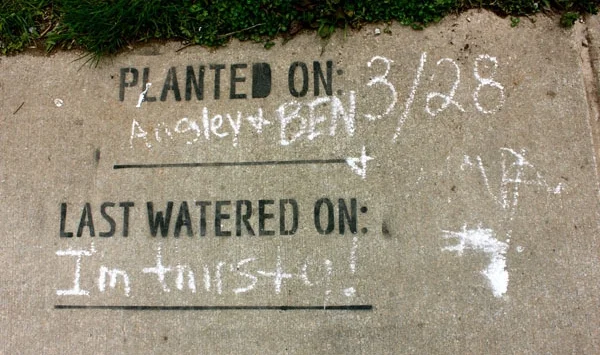 PLANTED ON: 3/28
Angley + BEN
LAST WATERED ON:
I'm thirsty!